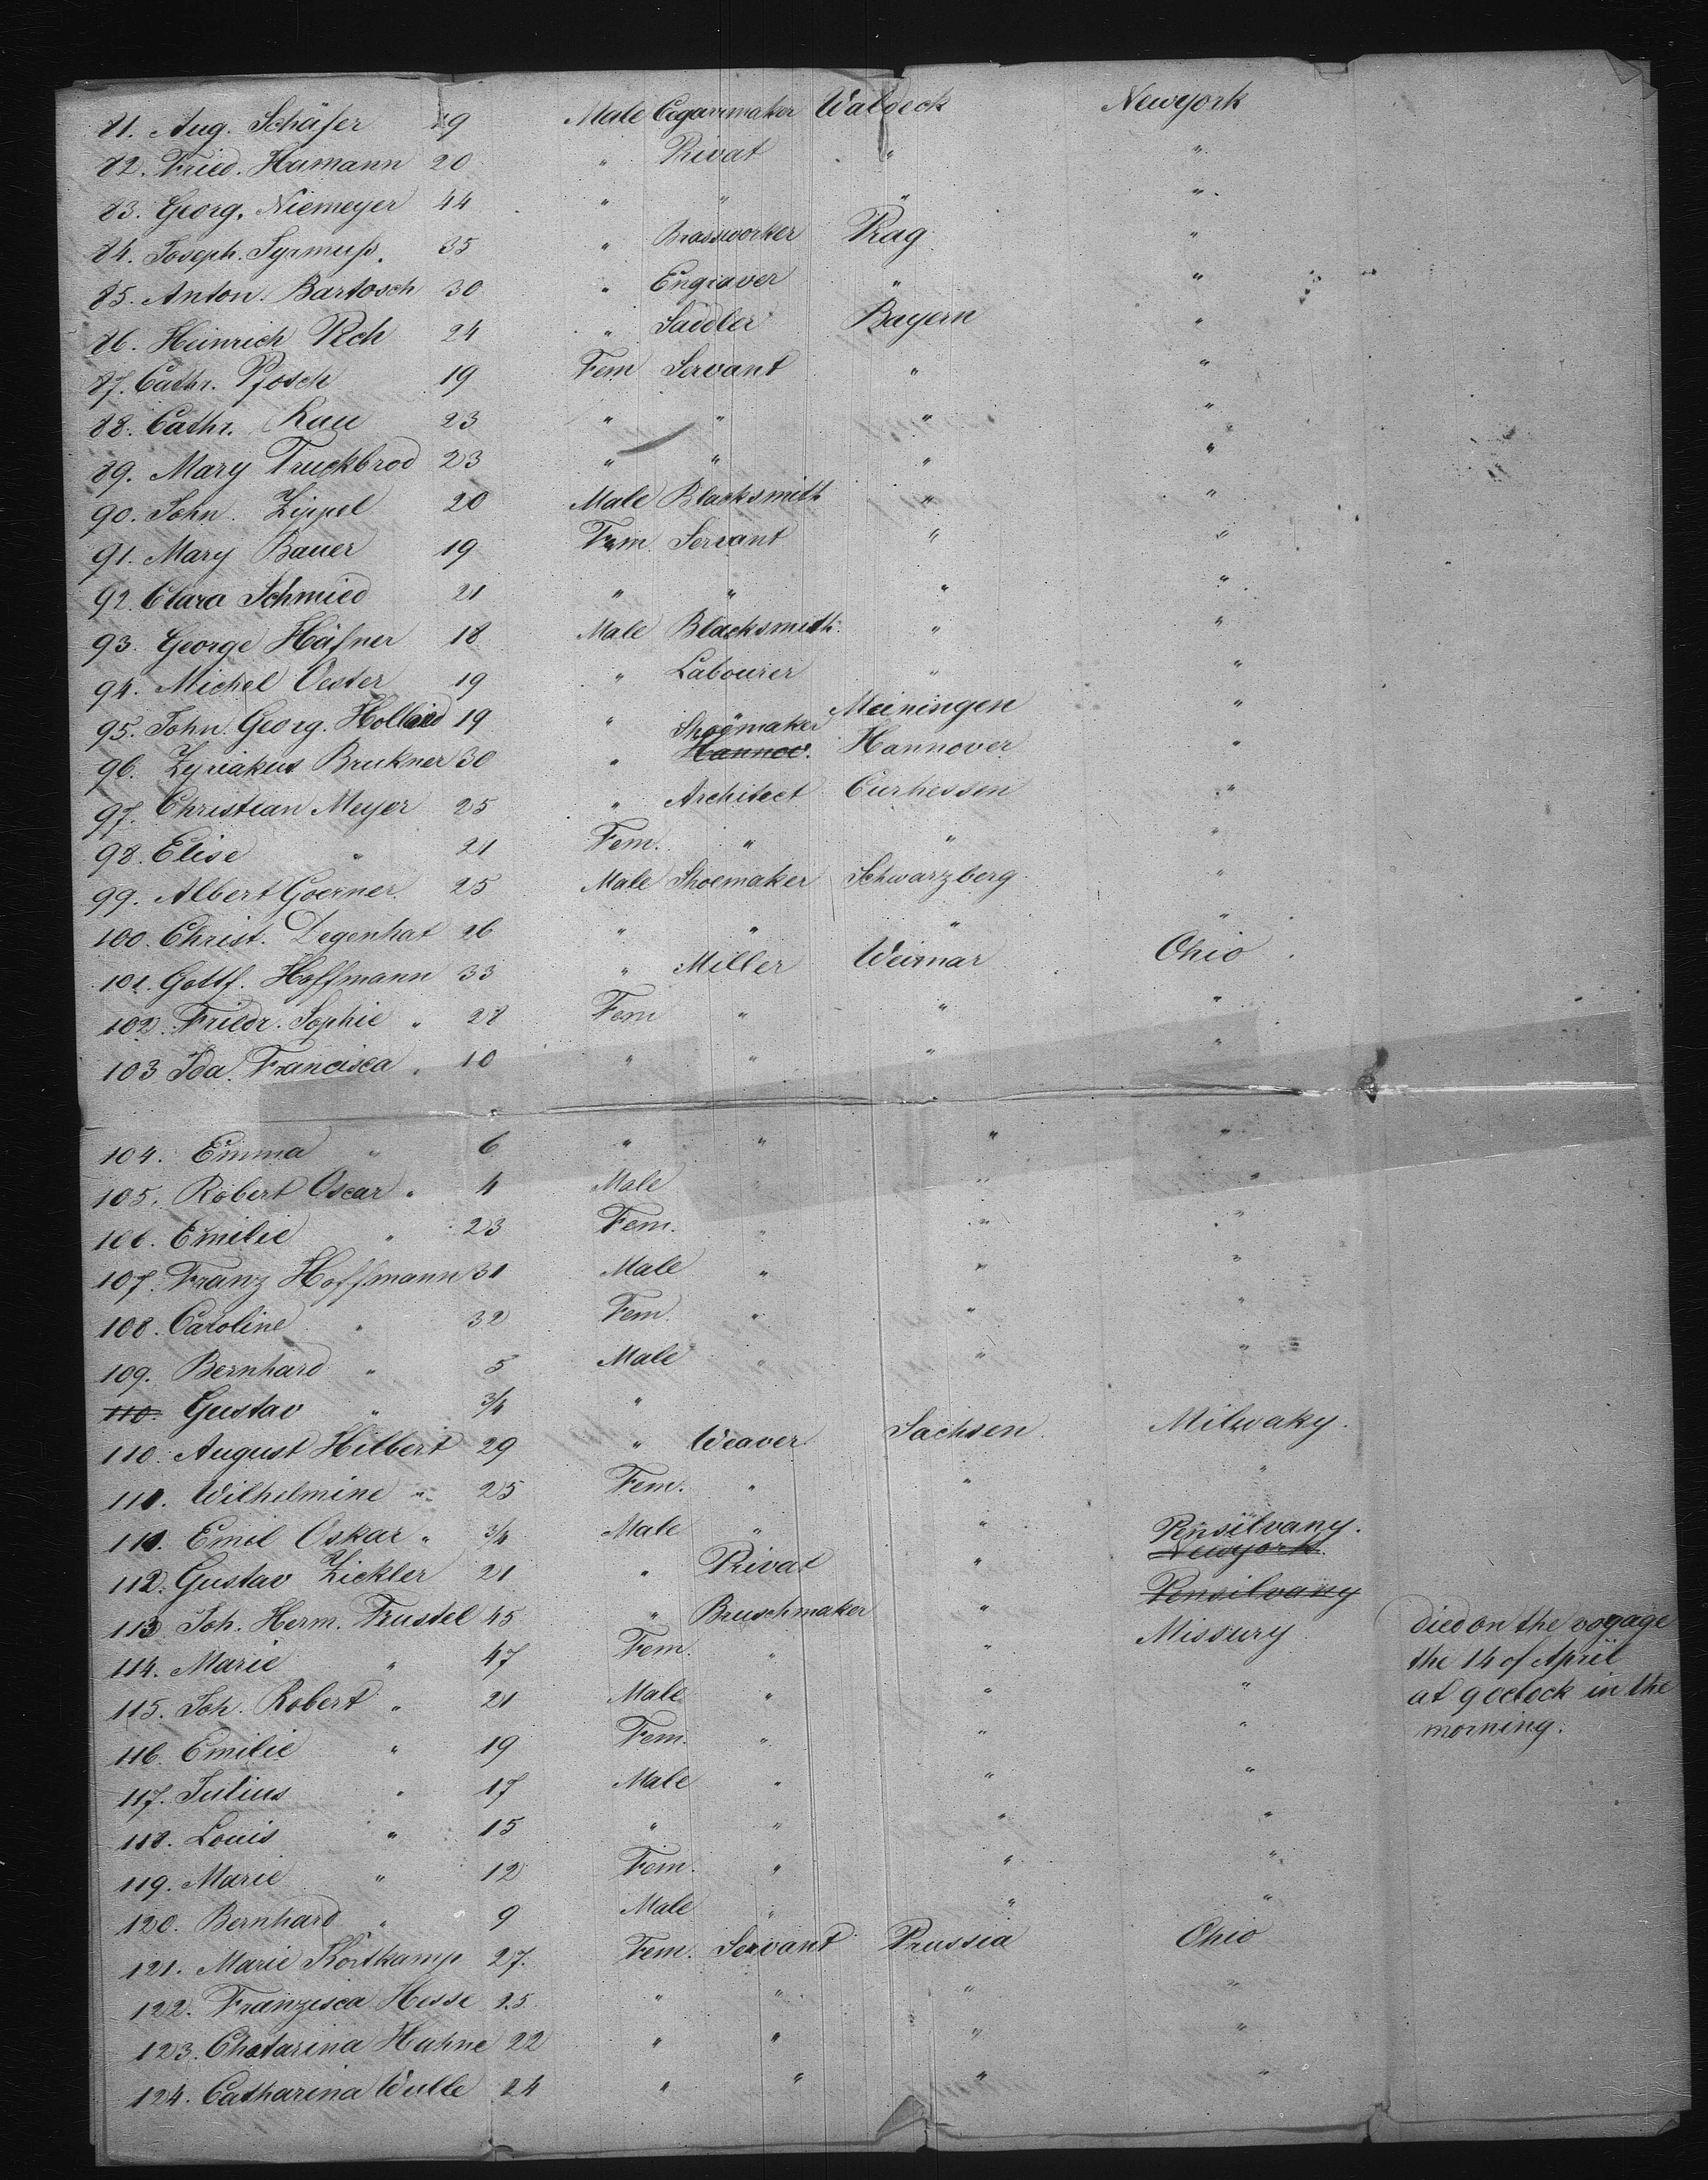 81. Aug. Schäfer 19 Male Cegarrmaker Waldeck Newyork
82. Fried. Humann 20 " Privat " "
83. Georg. Niemeyer 44 " " " "
84. Joseph. Syrmuß. 35 " Brassworker Prag "
85. Anton. Bartosch 30 " Engraver " "
86. Heinrich Pech 24 " Saddler Bayern "
87. Cathr. Pfosch 19 Fem Servant " "
88. Cathr. Rau 23 " " " "
89. Mary Truckbrod 23 " " " "
90. John. Zippel 20 Male Blacksmith " "
91. Mary Bauer 19 Fem. Servant " "
92. Clara Schmied 21 " " " "
93. George Häfner 18 Male Blacksmith. " "
94. Michel Oester 19 " Labourer " "
95. John Georg. Holland 19 " Shoomaker Meiningen "
96. Zyriakus Brukner 30 " Hannov. Hannover "
97. Christian Meyer 25 " Architect Curhessen "
98. Elise " 21 Fem. " " "
99. Albert Goerner. 25 Male Shoemaker Schwarzberg "
100. Christ. Degenhat 26 " " " "
101. Gottf. Hoffmann 33 " Miller Weimar Ohio
102. Friedr. Sophie " 28 Fem " " "
103 Ida. Francisca " 10 " " " "
104. Emma " 6 " " " "
105. Robert Oscar " 4 Male " " "
106. Emilie " 23 Fem. " " "
107. Franz Hoffmann 31 Male " " "
108. Caroline " 32 Fem. " " "
109. Bernhard " 5 Male " " "
110. Gustav " 3/4 "
110. August Hilbert 29 " Weaver Sachsen Milwaky.
111. Wilhelmine " 25 Fem. " " "
111. Emil Oskar " 3/4 Male " " Pensilvany.
112. Gustav Zickler 21 " Privat " Newyork
113 Joh. Herm. Trustel 45 " Bruschmaker " Pensilvany
114. Marie " 47 Fem. " " Missury died on the voyage
the 14 of April
115. Joh. Robert " 21 Male " " " at 9 oclock in the
116. Emilie " 19 Fem. " " " morning.
117. Julius " 17 Male " " "
118. Louis " 15 " " " "
119. Marie " 12 Fem. " " "
120. Bernhard " 9 Male " " "
121. Marie Kortkamp 27. Fem. Servant Prussia Ohio
122. Franzisca Hesse 25 " " " "
123. Chatarina Hahne 22 " " " "
124. Catharina Wulle 24 " " " "